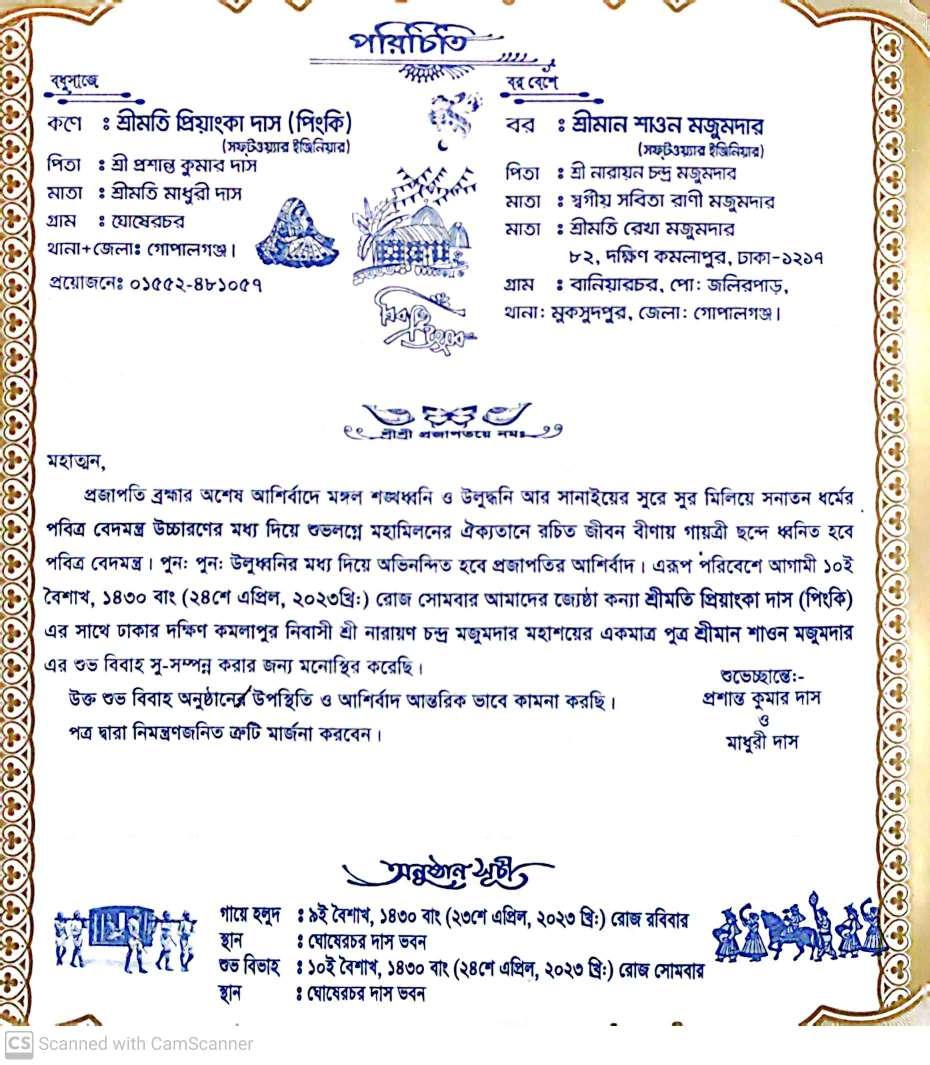 পরিচিতি
বধুসাজে
কণে : শ্রীমতি প্রিয়াংকা দাস (পিংকি)
(সফ্টওয়্যার ইঞ্জিনিয়ার)
পিতা : শ্রী প্রশান্ত কুমার দাস
মাতা : শ্রীমতি মাধুরী দাস
গ্রাম : ঘোষেরচর
থানা+জেলাঃ গোপালগঞ্জ।
প্রয়োজনেঃ ০১৫৫২-৪৮১০৫৭
বর বেশে
বর : শ্রীমান শাওন মজুমদার
(সফ্টওয়্যার ইঞ্জিনিয়ার)
পিতা : শ্রী নারায়ন চন্দ্র মজুমদার
মাতা : স্বর্গীয় সবিতা রাণী মজুমদার
মাতা : শ্রীমতি রেখা মজুমদার
৮২, দক্ষিণ কমলাপুর, ঢাকা-১২১৭
গ্রাম : বানিয়ারচর, পো: জলিরপাড়,
থানা: মুকসুদপুর, জেলা: গোপালগঞ্জ।
শ্রীশ্রী প্রজাপতয়ে নমঃ
মহাত্মন,
প্রজাপতি ব্রহ্মার অশেষ আশির্বাদে মঙ্গল শঙ্খধ্বনি ও উলুদ্ধনি আর সানাইয়ের সুরে সুর মিলিয়ে সনাতন ধর্মের
পবিত্র বেদমন্ত্র উচ্চারণের মধ্য দিয়ে শুভলগ্নে মহামিলনের ঐক্যতানে রচিত জীবন বীণায় গায়ত্রী ছন্দে ধ্বনিত হবে
পবিত্র বেদমন্ত্র। পুন: পুন: উলুধ্বনির মধ্য দিয়ে অভিনন্দিত হবে প্রজাপতির আশির্বাদ। এরূপ পরিবেশে আগামী ১০ই
বৈশাখ, ১৪৩০ বাং (২৪শে এপ্রিল, ২০২৩খ্রি:) রোজ সোমবার আমাদের জ্যেষ্ঠা কন্যা শ্রীমতি প্রিয়াংকা দাস (পিংকি)
এর সাথে ঢাকার দক্ষিণ কমলাপুর নিবাসী শ্রী নারায়ণ চন্দ্র মজুমদার মহাশয়ের একমাত্র পুত্র শ্রীমান শাওন মজুমদার
এর শুভ বিবাহ সু-সম্পন্ন করার জন্য মনোস্থির করেছি।
উক্ত শুভ বিবাহ অনুষ্ঠানের উপস্থিতি ও আশির্বাদ আন্তরিক ভাবে কামনা করছি।
পত্র দ্বারা নিমন্ত্রণজনিত ত্রুটি মার্জনা করবেন।
শুভেচ্ছান্তে:-
প্রশান্ত কুমার দাস
ও
মাধুরী দাস
অনুষ্ঠান সূচী
গায়ে হলুদ : ৯ই বৈশাখ, ১৪৩০ বাং (২৩শে এপ্রিল, ২০২৩ খ্রি:) রোজ রবিবার
স্থান : ঘোষেরচর দাস ভবন
শুভ বিভাহ : ১০ই বৈশাখ, ১৪৩০ বাং (২৪শে এপ্রিল, ২০২৩ খ্রি:) রোজ সোমবার
স্থান : ঘোষেরচর দাস ভবন
CS Scanned with CamScanner